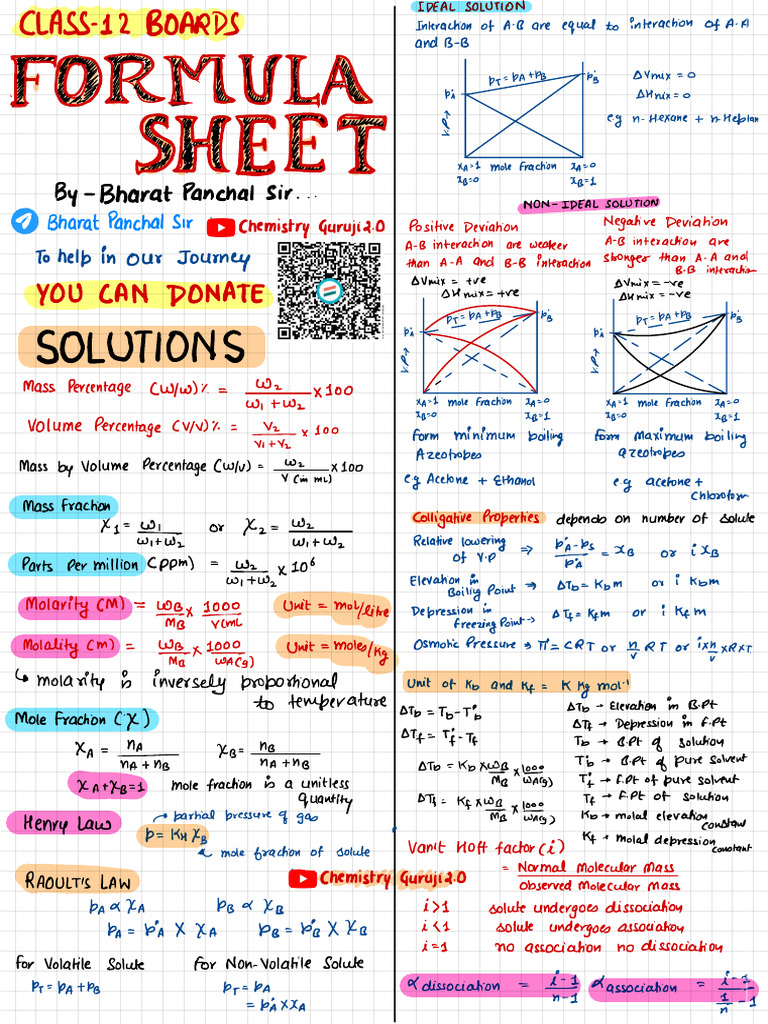 CLASS-12 BOARDS
FORMULA
SHEET
By - Bharat Panchal Sir...
Bharat Panchal Sir
Chemistry Guruji 2.0
To help in our Journey
YOU CAN DONATE
SOLUTIONS
Mass Percentage (w/w)% = w₂/(w₁+w₂) × 100
Volume Percentage (V/V)% = V₂/(V₁+V₂) × 100
Mass by Volume Percentage (w/v) = w₂/V(in mL) × 100
Mass fraction
χ₁ = w₁/(w₁+w₂) or χ₂ = w₂/(w₁+w₂)
Parts Per million (ppm) = w₂/(w₁+w₂) × 10⁶
Molarity (M) = wB/MB × 1000/V(mL Unit = mol/litre
Molality (m) = wB/MB × 1000/WA(g) Unit = moles/kg
↳ molarity is inversely proportional
to temperature
Mole Fraction (χ)
χA = nA/(nA+nB) χB = nB/(nA+nB)
χA+χB=1 mole fraction is a unitless
quantity
Henry Law
→ partial pressure of gas
p = KH χB
mole fraction of solute
RAOULT'S LAW
Chemistry Guruji 2.0
pA ∝ χA pB ∝ χB
pA = p°A × χA pB = p°B × χB
for Volatile Solute for Non-Volatile Solute
pT = pA + pB pT = pA
= p°A × χA
IDEAL SOLUTION
Interaction of A-B are equal to interaction of A-A
and B-B
pT = pA + pB
p°A
p°B
V.P→
χA=1 mole fraction χA=0
χB=0 χB=1
ΔVmix = 0
ΔHmix = 0
eg n-Hexane + n-Heptan
NON-IDEAL SOLUTION
Positive Deviation
A-B interaction are weaker
than A-A and B-B interaction
ΔVmix = +ve
ΔHmix = +ve
pT = pA + pB
p°A
p°B
V.P→
χA=1 mole fraction χA=0
χB=0 χB=1
form minimum boiling
Azeotropes
eg Acetone + Ethanol
Negative Deviation
A-B interaction are
stronger than A-A and
B-B interaction
ΔVmix = -ve
ΔHmix = -ve
pT = pA + pB
p°A
p°B
V.P→
χA=1 mole fraction χA=0
χB=0 χB=1
form Maximum boiling
azeotropes
eg acetone +
Chloroform
Colligative Properties depends on number of solute
Relative lowering
of V.P ⇒ (p°A-ps)/p°A = χB or i χB
Elevation in
Boiling Point → ΔTb = Kb m or i Kb m
Depression in
freezing Point → ΔTf = Kf m or i Kf m
Osmotic Pressure → π = CRT or n/v RT or i×n/v × R×T
Unit of Kb and Kf = K Kg mol⁻¹
ΔTb = Tb - T°b
ΔTf = T°f - Tf
ΔTb = Kb × wB/MB × 1000/WA(g)
ΔTf = Kf × wB/MB × 1000/WA(g)
ΔTb → Elevation in B.Pt
ΔTf → Depression in F.Pt
Tb → B.Pt of solution
T°b → B.Pt of pure solvent
T°f → F.Pt of pure solvent
Tf → F.Pt of solution
Kb → molal elevation
constant
Kf → molal depression
constant
Vanit Hoff factor (i)
= Normal Molecular Mass/Observed Molecular Mass
i>1 solute undergoes dissociation
i<1 solute undergoes association
i=1 no association no dissociation
α dissociation = (i-1)/(n-1)
α association = (i-1)/(1/n -1)